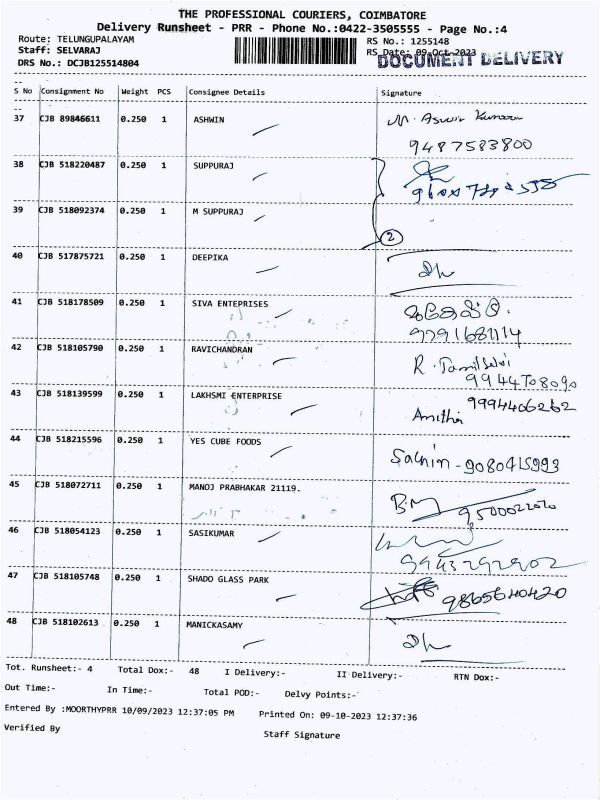 THE PROFESSIONAL COURIERS, COIMBATORE
Delivery Runsheet - PRR - Phone No.:0422-3505555 - Page No.:4
Route: TELUNGUPALAYAM
RS No.: 1255148
Staff: SELVARAJ
RS Date: 09-Oct-2023
DRS No.: DCJB125514804
DOCUMENT DELIVERY
S No Consignment No Weight PCS Consignee Details Signature
37 CJB 89846611 0.250 1 ASHWIN M. Aswin Kumaran
9487583800
38 CJB 518220487 0.250 1 SUPPURAJ
39 CJB 518092374 0.250 1 M SUPPURAJ
2
40 CJB 517875721 0.250 1 DEEPIKA
41 CJB 518178509 0.250 1 SIVA ENTEPRISES
9791681114
42 CJB 518105790 0.250 1 RAVICHANDRAN R. Tamilselvi
9944708090
43 CJB 518139599 0.250 1 LAKHSMI ENTERPRISE 9994406262
Amitha
44 CJB 518215596 0.250 1 YES CUBE FOODS Sachin - 9080415993
45 CJB 518072711 0.250 1 MANOJ PRABHAKAR 21119.
9500022020
46 CJB 518054123 0.250 1 SASIKUMAR
9943292902
47 CJB 518105748 0.250 1 SHADO GLASS PARK 9865640420
48 CJB 518102613 0.250 1 MANICKASAMY
Tot. Runsheet:- 4 Total Dox:- 48 I Delivery:- II Delivery:- RTN Dox:-
Out Time:- In Time:- Total POD:- Delvy Points:-
Entered By :MOORTHYPRR 10/09/2023 12:37:05 PM Printed On: 09-10-2023 12:37:36
Verified By Staff Signature